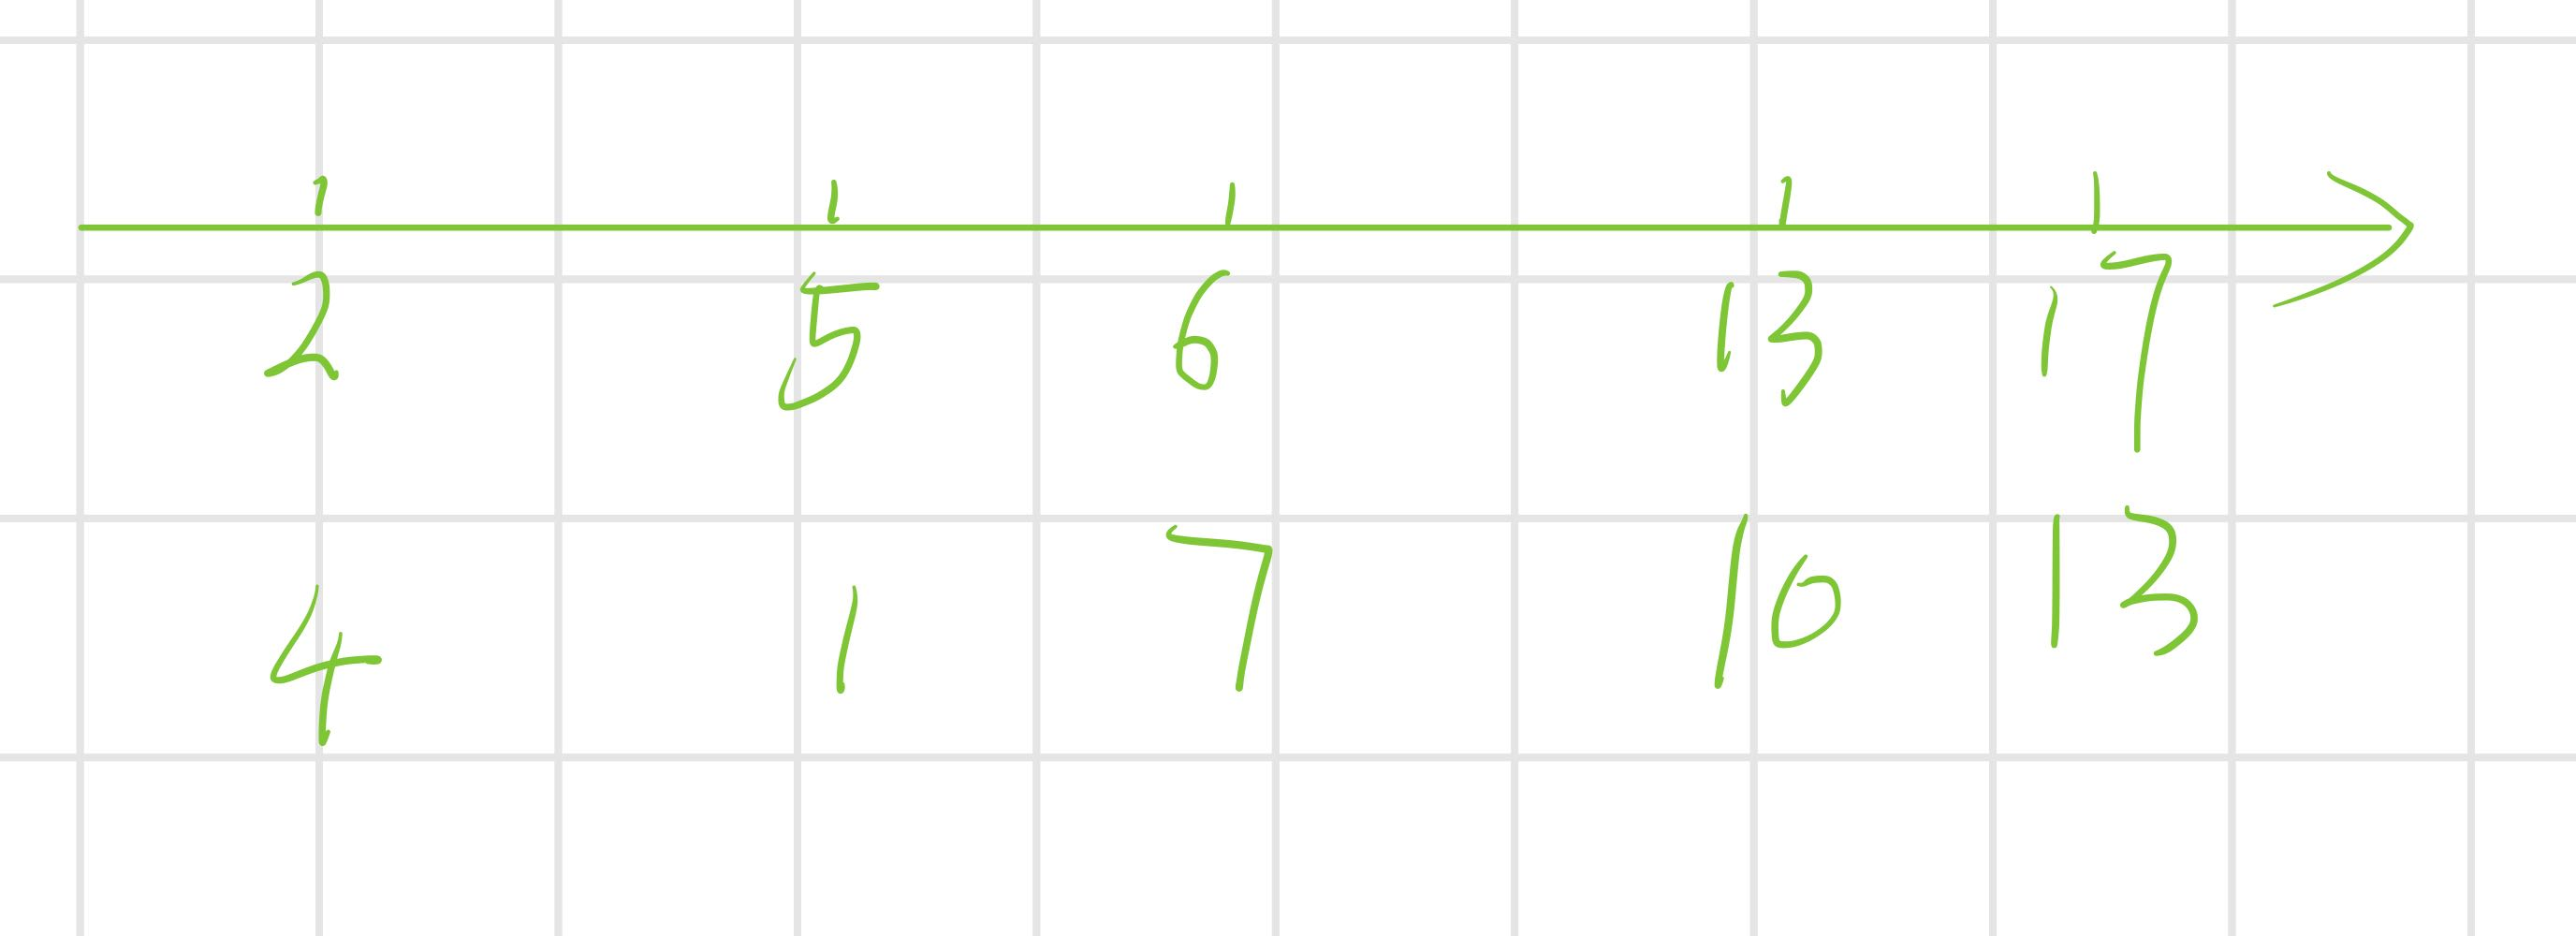 2 5 6 13 17
4 1 7 10 13